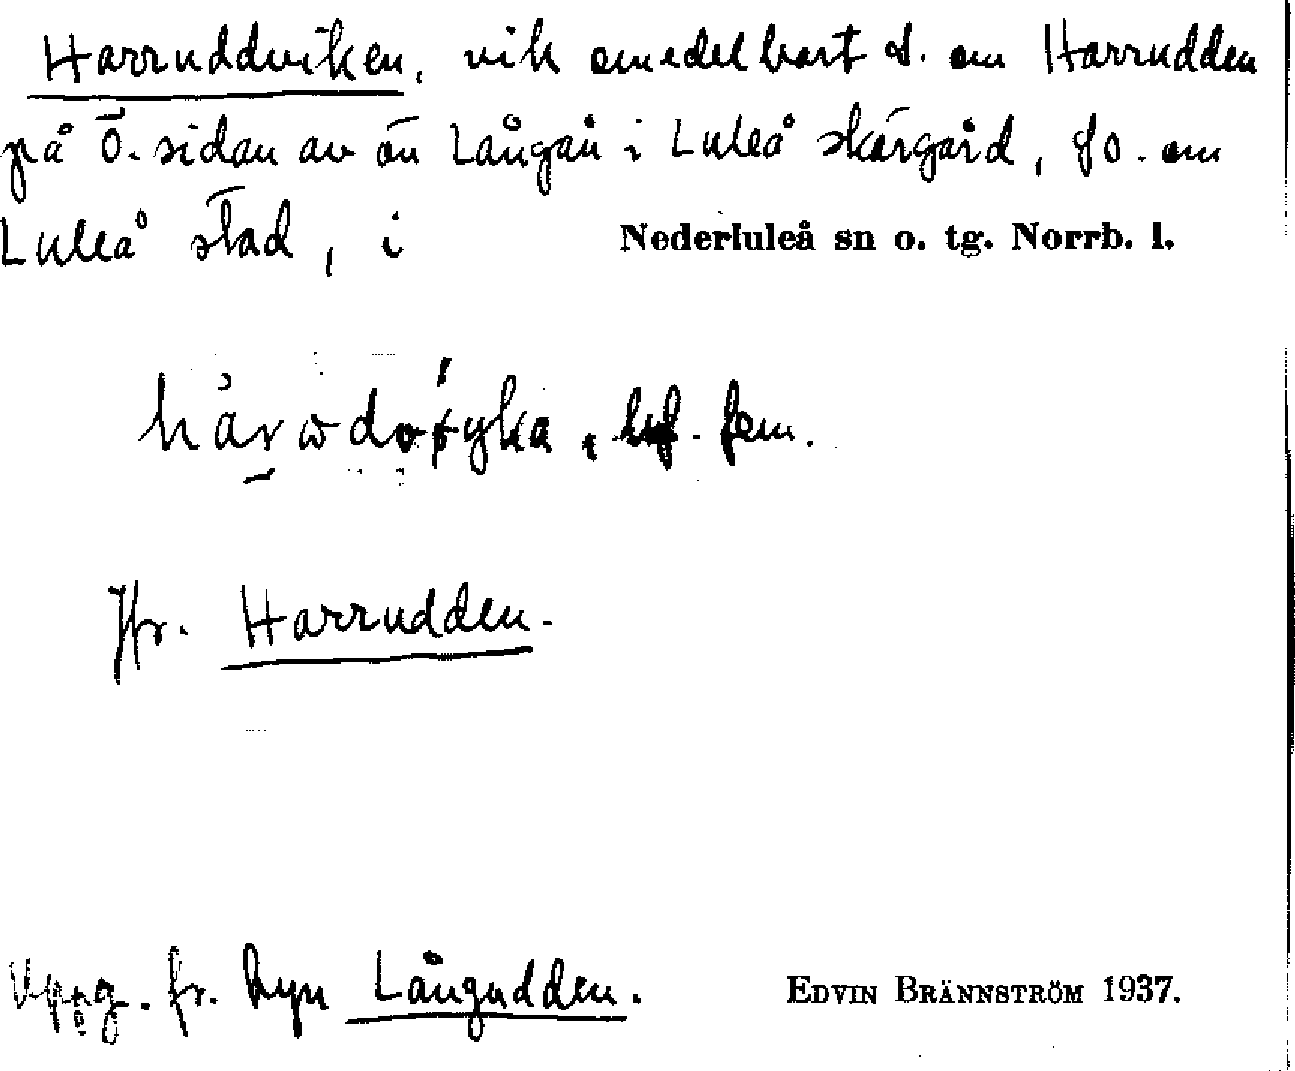 Harruddviken, vik omedelbart S. om Harrudden
på Ö. sidan av ön Långön i Luleå skärgård, SO. om
Luleå stad, i Nederluleå sn o. tg. Norrb. l.
bf. fem.
Jfr. Harrudden.
Uppg. fr. byn Långudden. EDVIN BRÄNNSTRÖM 1937.